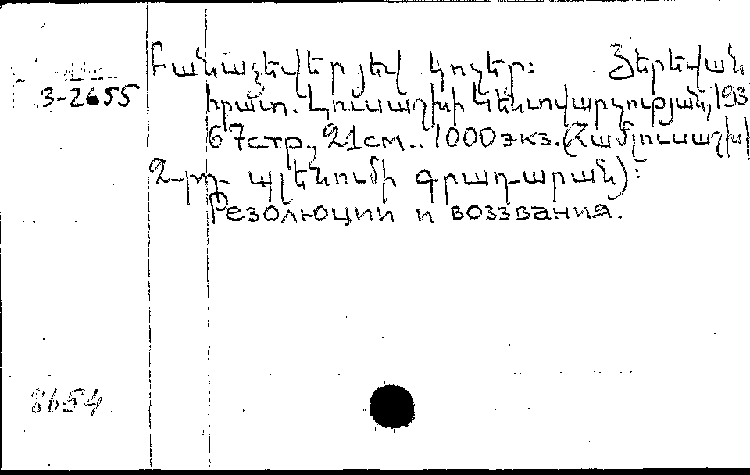 Բանաձեվեր յեվ կոչեր։ Յերեվան
3-2655
հրատ. Կուսաղխի կենտվարչության, 193
67стр., 21см.. 1000 экз. (Համլուսաղխ
2-րդ պլենումի գրադարան)։
Резолюции и воззвания.
8654